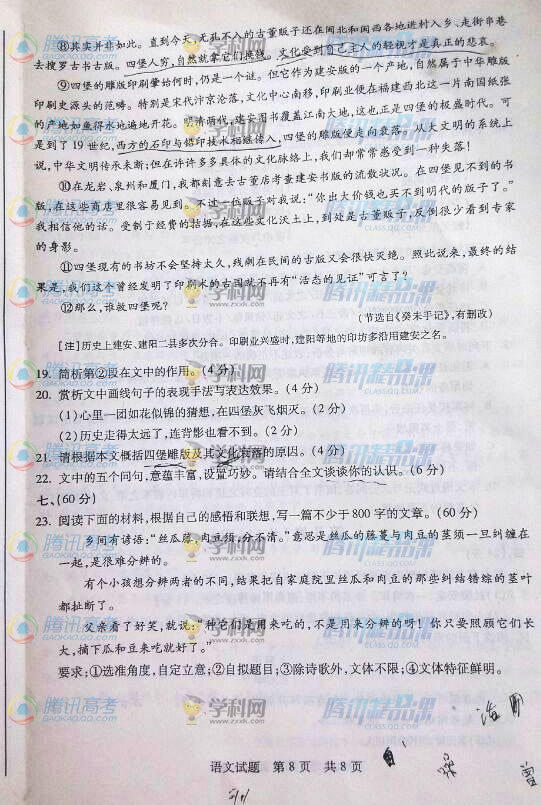 ⑧其实并非如此。直到今天,无孔不入的古董贩子还在闽北和闽西各地进村入乡、走街串巷
去搜罗古书古版。四堡人穷,自然就拿它们换钱。文化受到自己主人的轻视才是真正的悲哀。
⑨四堡的雕版印刷肇始何时,仍是一个谜。但它作为建安版的一个产地,自然属于中华雕版
印刷史源头的范畴。特别是宋代汴京沦落,文化中心南移,印刷业便在福建西北这一片南国纸张
的产地如鱼得水地遍地开花。明清两代,建安图书覆盖江南大地,这也正是四堡的极盛时代。可
是到了19世纪,西方的石印与铅印技术相继传入,四堡的雕版便走向衰落。从大文明的系统上
说,中华文明传承未断;但在许许多多具体的文化脉络上,我们却常常感受到一种失落!
⑩在龙岩、泉州和厦门,我都刻意去古董店考查建安书版的流散状况。在四堡见不到的书
版,在这些商店里很容易见到。不过一位贩子对我说:“你出大价钱也买不到明代的版子了。”
我相信他的话。受制于经费的拮据,在这些文化沃土上,到处是古董贩子,反倒很少看到专家
的身影。
⑪四堡现有的书坊不会坚持太久,残剩在民间的古版又会很快灭绝。照此说来,最终的结
果是,我们这个曾经发明了印刷术的古国就不再有“活态的见证”可言了?
⑫那么,谁救四堡呢?
(节选自《癸未手记》,有删改)
[注]历史上建安、建阳二县多次分合。印刷业兴盛时,建阳等地的印坊多沿用建安之名。
19. 简析第②段在文中的作用。(4分)
20. 赏析文中画线句子的表现手法与表达效果。(4分)
(1)心里一团如花似锦的猜想,在四堡灰飞烟灭。(2分)
(2)历史走得太远了,连背影也看不到。(2分)
21. 请根据本文概括四堡雕版及其文化衰落的原因。(4分)
22. 文中的五个问句,意蕴丰富,设置巧妙。请结合全文谈谈你的认识。(6分)
七、(60分)
23. 阅读下面的材料,根据自己的感悟和联想,写一篇不少于800字的文章。(60分)
乡间有谚语:“丝瓜藤,肉豆须,分不清。”意思是丝瓜的藤蔓与肉豆的茎须一旦纠缠在
一起,是很难分辨的。
有个小孩想分辨两者的不同,结果把自家庭院里丝瓜和肉豆的那些纠结错综的茎叶
都扯断了。
父亲看了好笑,就说:“种它们是用来吃的,不是用来分辨的呀!你只要照顾它们长
大,摘下瓜和豆来吃就好了。”
要求:①选准角度,自定立意;②自拟题目;③除诗歌外,文体不限;④文体特征鲜明。
语文试题 第8页 共8页
腾讯高考
GAOKAO.QQ.COM
学科网
www.zxxk.com
腾讯精品课
CLASS.QQ.COM